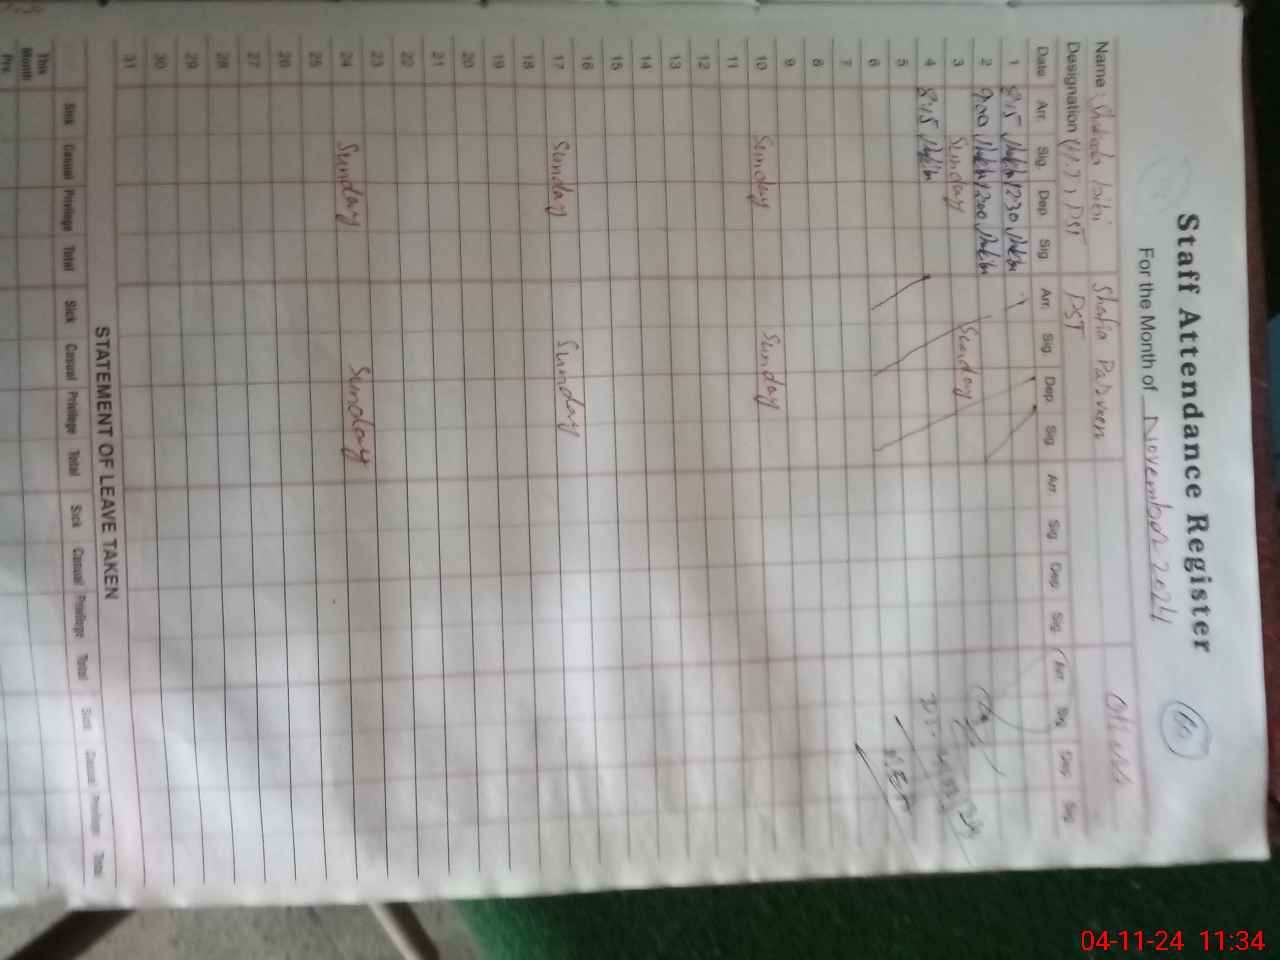 Staff Attendance Register
For the Month of November 2024
Name: Shakeela bibi Shafia Parveen
Designation PST PST
Date Arr. Sig. Dep. Sig Arr. Sig. Dep. Sig Arr. Sig. Dep. Sig. Arr. Sig. Dep. Sig
1 8:15 1230
2 9:00 1200
3 Sunday Sunday
4 8:15
5
6
7
8
9
10 Sunday Sunday
11
12
13
14
15
16
17 Sunday Sunday
18
19
20
21
22
23
24 Sunday Sunday
25
26
27
28
29
30
31
STATEMENT OF LEAVE TAKEN
Sick Casual Privilege Total Sick Casual Privilege Total Sick Casual Privilege Total Sick Casual Privilege Total
This Month
Pre.
04-11-24 11:34